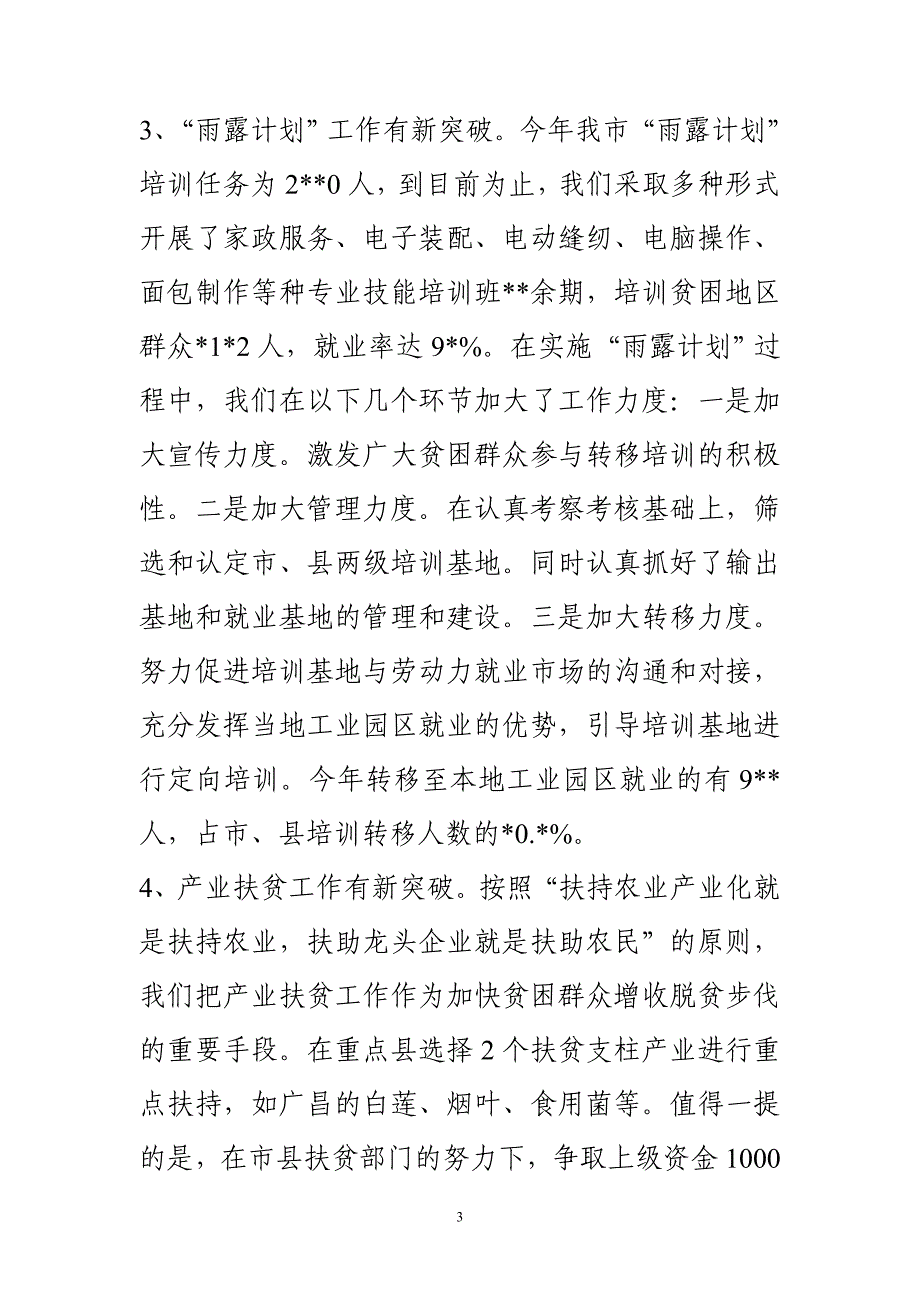 3、“雨露计划”工作有新突破。今年我市“雨露计划”
培训任务为 2**0 人，到目前为止，我们采取多种形式
开展了家政服务、电子装配、电动缝纫、电脑操作、
面包制作等种专业技能培训班**余期，培训贫困地区
群众*1*2 人，就业率达 9*%。在实施“雨露计划”过
程中，我们在以下几个环节加大了工作力度：一是加
大宣传力度。激发广大贫困群众参与转移培训的积极
性。二是加大管理力度。在认真考察考核基础上，筛
选和认定市、县两级培训基地。同时认真抓好了输出
基地和就业基地的管理和建设。三是加大转移力度。
努力促进培训基地与劳动力就业市场的沟通和对接，
充分发挥当地工业园区就业的优势，引导培训基地进
行定向培训。今年转移至本地工业园区就业的有 9**
人，占市、县培训转移人数的*0.*%。
4、产业扶贫工作有新突破。按照“扶持农业产业化就
是扶持农业，扶助龙头企业就是扶助农民”的原则，
我们把产业扶贫工作作为加快贫困群众增收脱贫步伐
的重要手段。在重点县选择 2 个扶贫支柱产业进行重
点扶持，如广昌的白莲、烟叶、食用菌等。值得一提
的是，在市县扶贫部门的努力下，争取上级资金 1000
3